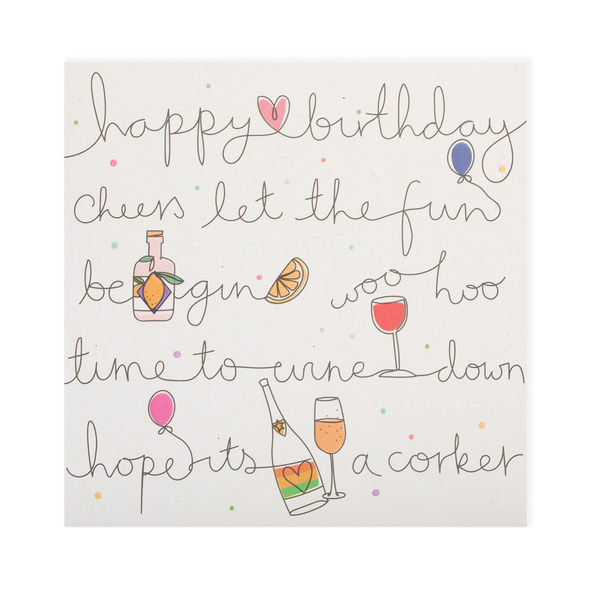 happy birthday
cheers let the fun
be gin woo hoo
time to wine down
hope its a corker